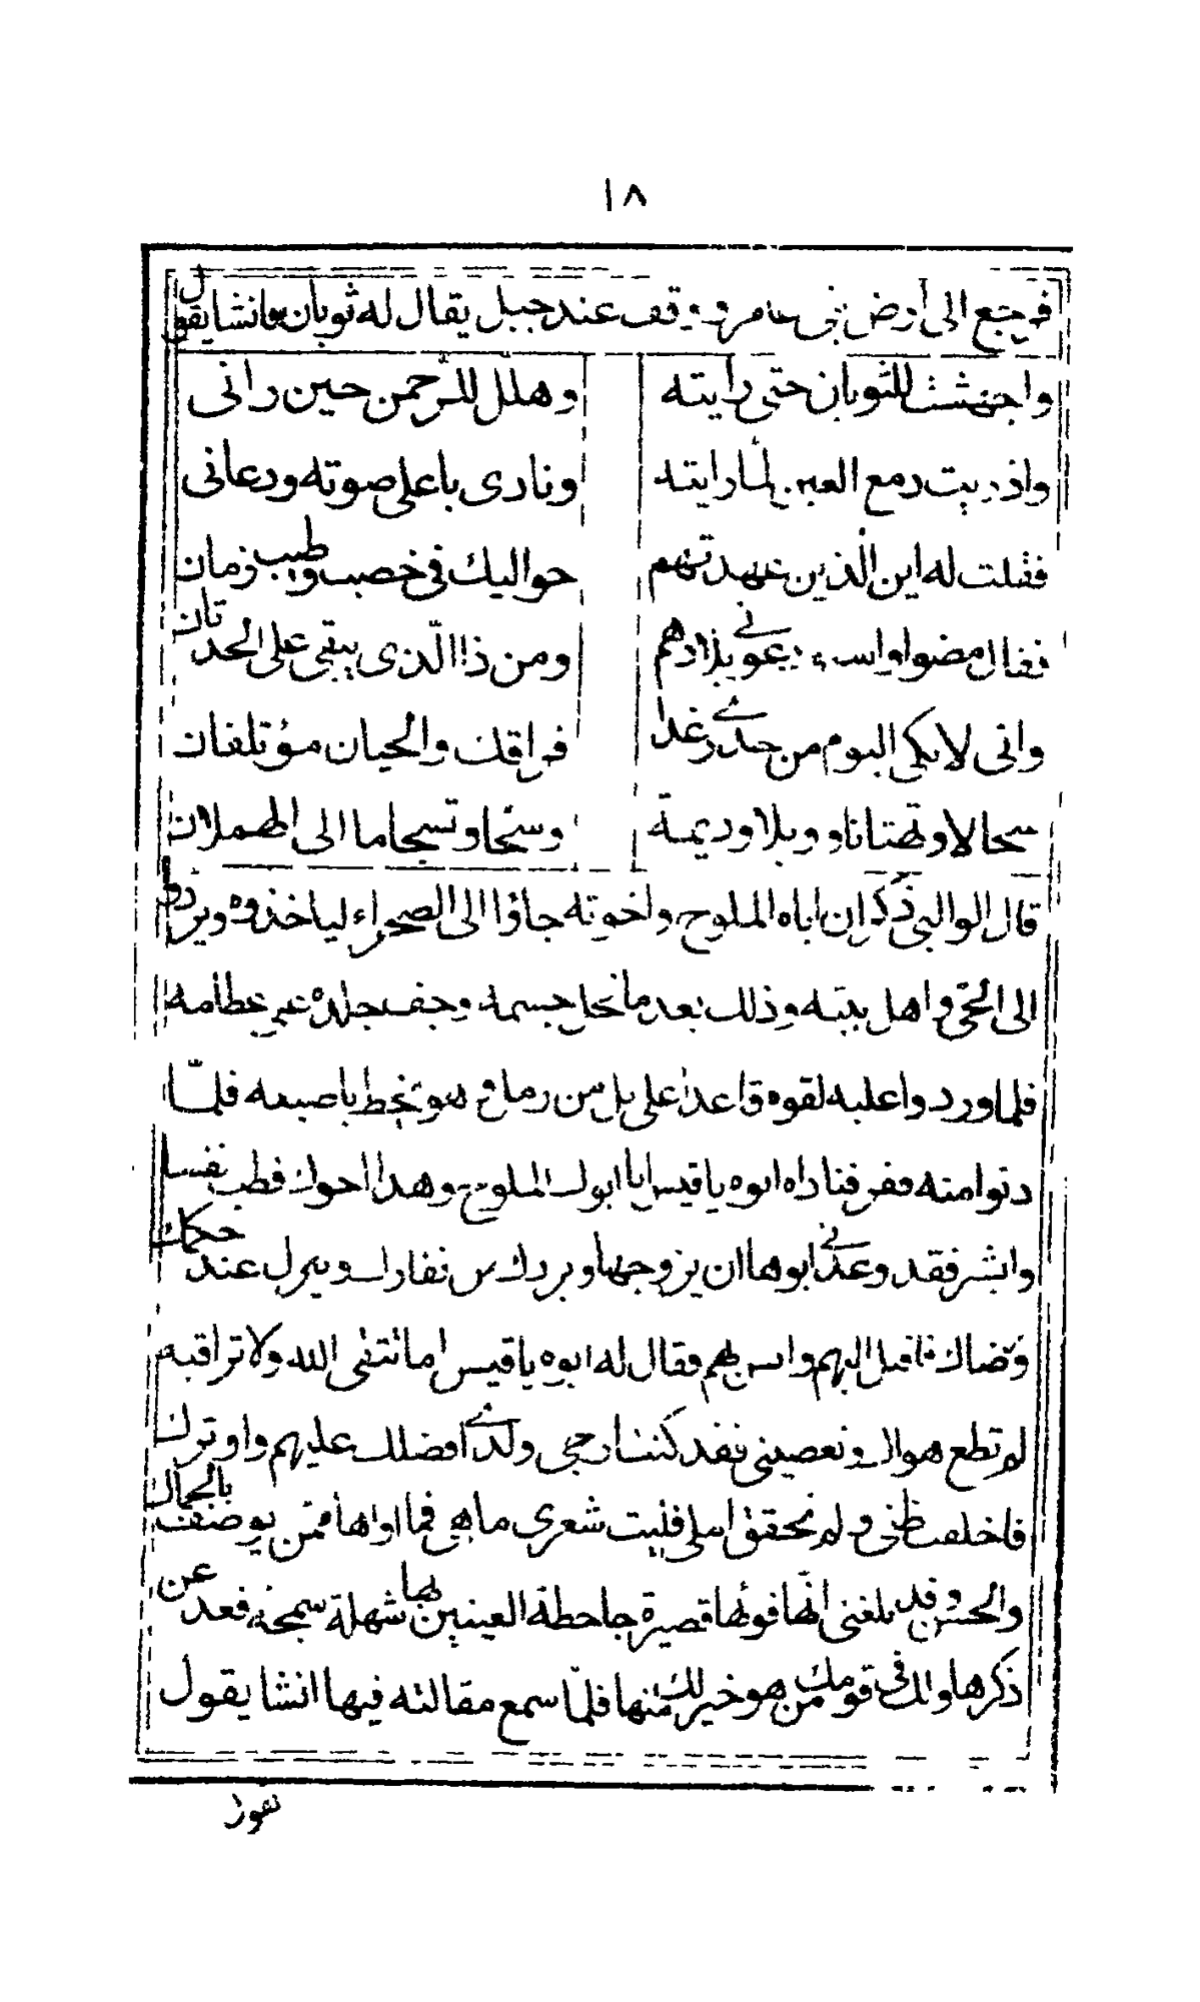 ١٨
فرجع الى أرض بنى عامر ووقف عند جبل يقال له ثوبان وانشا يقول
واجهشت للثوبان حتى رايته وهلل للرّحمن حين رانى
واذريت دمع العين لمّا رايته ونادى باعلى صوته ودعانى
فقلت له اين الّذين عهدتهم حواليك فى خصب وطيب زمان
فقال مضوا واستودعونى بلادهم ومن ذا الّذى يبقى على الحدثان
وانى لابكى اليوم من حذرى غدا فراقك والحيان مؤتلفان
سحالا وتهتانا ووبلا وديمة وسحّا وتسجاما الى الهملان
قال الوالبى ذكر ان اباه الملوح واخوته جاؤا الى الصحراء لياخذوه ويردوه
الى الحىّ واهل بيته وذلك بعد ما نحل جسمه وجف جلده على عظامه
فلما وردوا عليه لقوه قاعدا على تل من رمل وهو يخط باصبعه فلمّا
دنوا منه نفر فناداه ابوه يا قيس انا ابوك الملوح وهذا اخوك فطب نفسا
وابشر فقد وعدنى ابوها ان يزوجها ويردك من نفارك وينزل عند حكمك
ورضاك فاقبل اليهم وانس بهم فقال له ابوه يا قيس اما تتقى الله ولا تراقبه
لم تطع هواك وتعصينى فقد كنت ارجى ولدى افضلك عليهم واوثرك
فاخلفت ظنى ولم تحقق املى فليت شعرى ما هى فما اراها ممّن يوصف بالجمال
والحسن وقد بلغنى انّها فوهاء قصيرة جاحظة العينين شهلة سمجة فعد عن
ذكرها ولك فى قومك من هو خير لك منها فلمّا سمع مقالته فيها انشا يقول